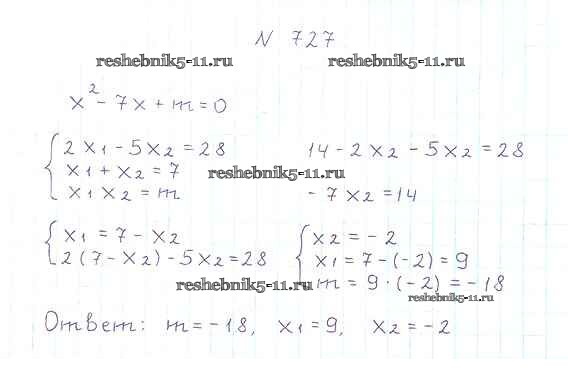 N 727
reshebnik5-11.ru reshebnik5-11.ru
x² - 7x + m = 0
2x₁ - 5x₂ = 28
x₁ + x₂ = 7
x₁x₂ = m
14 - 2x₂ - 5x₂ = 28
reshebnik5-11.ru
- 7x₂ = 14
x₁ = 7 - x₂
2(7 - x₂) - 5x₂ = 28
x₂ = -2
x₁ = 7 - (-2) = 9
m = 9 · (-2) = -18
reshebnik5-11.ru
reshebnik5-11.ru
Ответ: m = -18, x₁ = 9, x₂ = -2